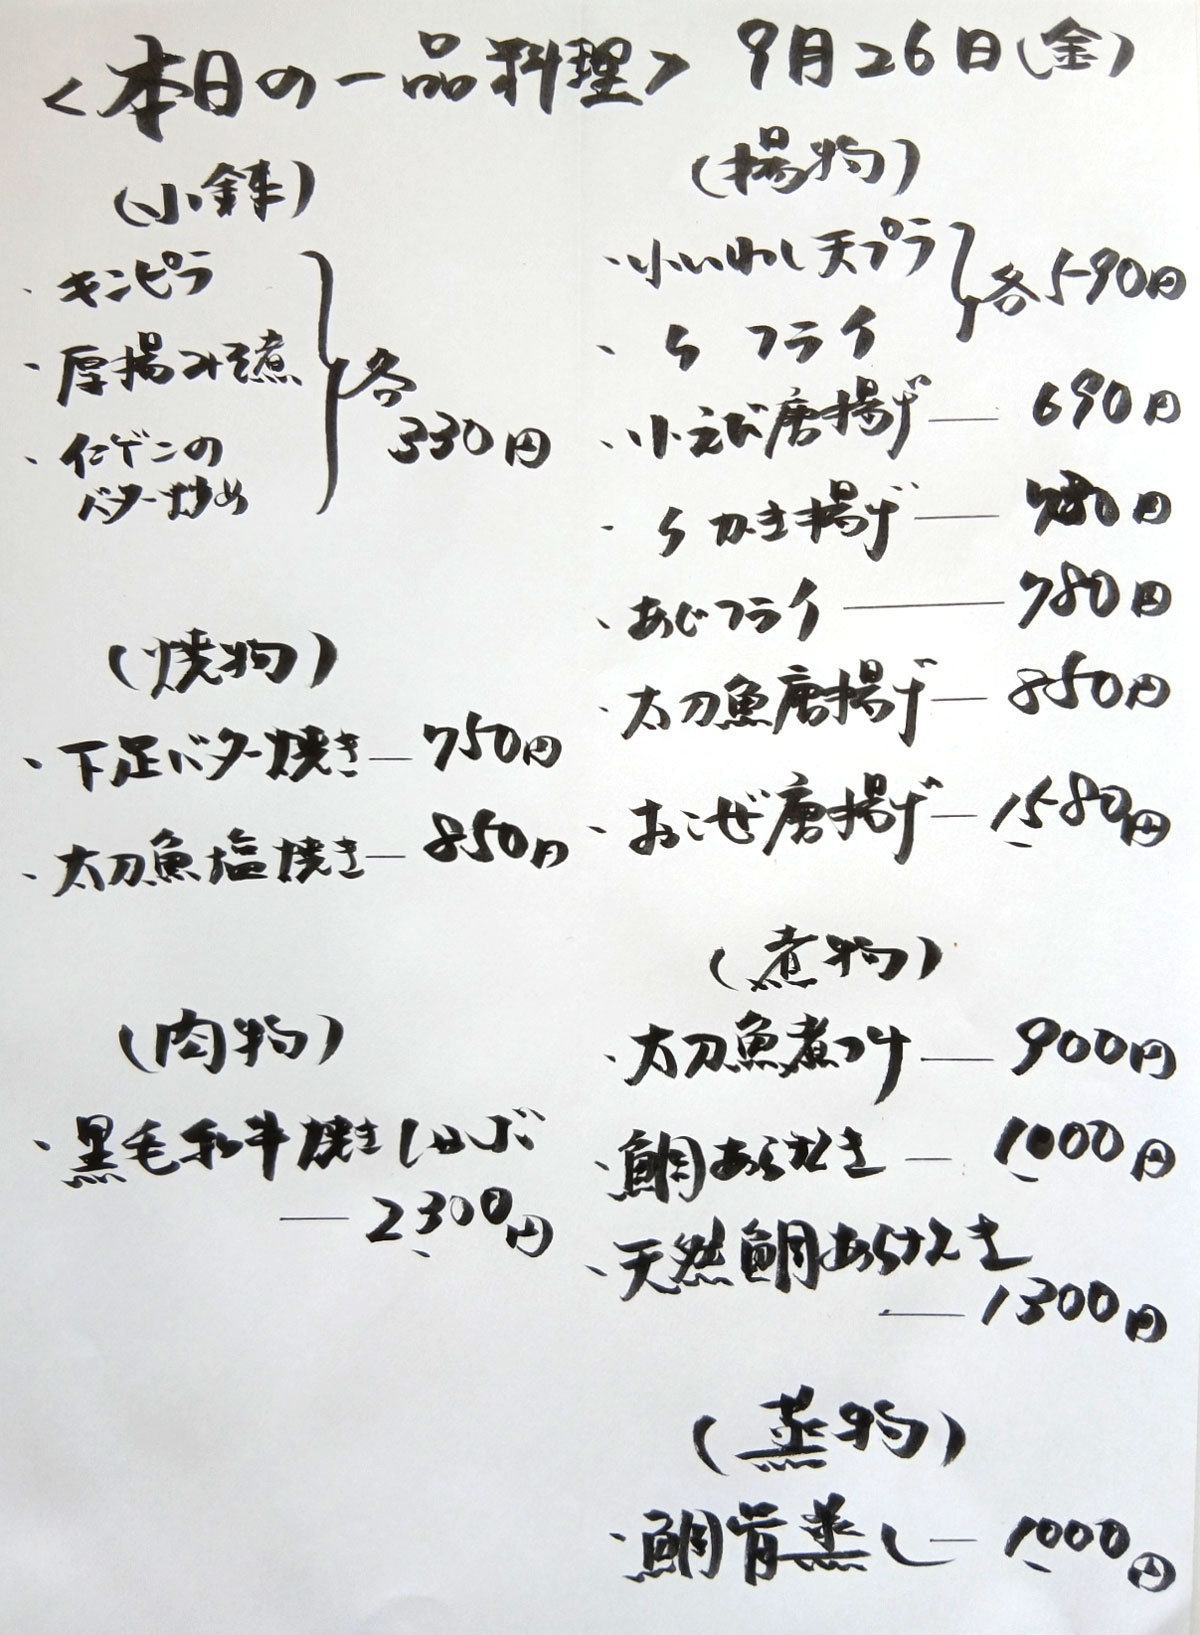 <本日の一品料理> 9月26日(金)
(小鉢)
・キンピラ
・厚揚みそ煮
・インゲンの
バター炒め
各
330円
(焼物)
・下足バター焼き―750円
・太刀魚塩焼き―850円
(肉物)
・黒毛和牛焼きしゃぶ
―2300円
(揚物)
・小いわし天プラ
各590円
・〃 フライ
・小えび唐揚げ―690円
・〃 かき揚げ―780円
・あじフライ―780円
・太刀魚唐揚げ―850円
・おこぜ唐揚げ―1,580円
(煮物)
・太刀魚煮つけ―900円
・鯛あらだき―1,000円
・天然鯛あらだき
―1300円
(蒸物)
・鯛骨蒸し―1,000円